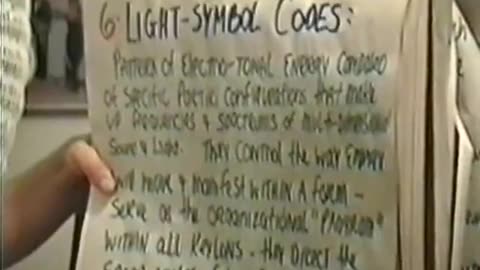 6. LIGHT-SYMBOL CODES:
PATTERN OF ELECTRO-TONAL ENERGY COMPOSED
OF SPECIFIC PARTICLE CONFIGURATIONS THAT MAKE
UP FREQUENCIES & SPECTRUMS OF MULTI-DIMENSIONAL
SOUND & LIGHT. THEY CONTROL THE WAY ENERGY
WILL MOVE & MANIFEST WITHIN A FORM -
SERVE AS THE ORGANIZATIONAL "PROGRAM"
WITHIN ALL KEYLONS - THEY DIRECT THE